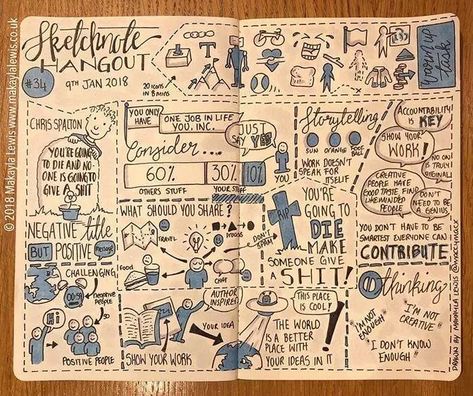 © 2018 Makayla Lewis www.makaylalewis.co.uk
Sketchnote
HANGOUT
#34
9TH JAN 2018
20 ICONS IN
8 MINS
Grown up
task
CHRIS SPALTON
YOU'RE GOING
TO DIE AND NO
ONE IS GOING TO
GIVE A SHIT
NEGATIVE title
BUT POSITIVE message
CHALLENGING
negative
people
POSITIVE PEOPLE
YOU ONLY
HAVE
ONE JOB IN LIFE
YOU, INC.
JUST
SAY YES!
Consider...
60%
30%
10%
OTHERS STUFF
YOUR STUFF
YOU
WHAT SHOULD YOU SHARE?
TRAVEL
FOOD
DON'T
SPAM
CHAT
SHOW YOUR WORK
AUTHOR
INSPIRES
YOUR IDEA
THIS PLACE
IS COOL!
THE WORLD
IS A BETTER
PLACE WITH
YOUR IDEAS IN IT
Storytelling
SUN ORANGE FOOT
BALL
WORK DOESN'T
SPEAK FOR
ITSELF
YOU'RE
GOING TO
DIE
MAKE
SOMEONE GIVE
A SHIT!
ACCOUNTABILITY
IS KEY
SHOW YOUR
WORK!
NO ONE
IS TRULY
ORIGINAL
CREATIVE
PEOPLE HAVE
GOOD TASTE FIND
LIKEMINDED
PEOPLE
DON'T
NEED TO BE
A GENIUS
YOU DON'T HAVE TO BE
SMARTEST EVERYONE CAN
CONTRIBUTE
thinking
"I'M NOT
ENOUGH"
"I'M NOT
CREATIVE"
"I DON'T KNOW
ENOUGH"
DRAWN BY MAKAYLA LEWIS